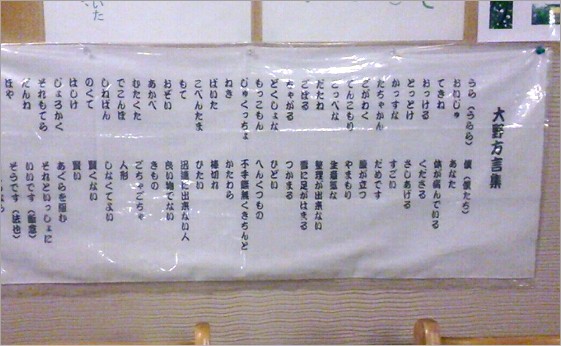 大野方言集
うら（うらら） 僕（僕たち）
おいじゅ あなた
てきね 体が痛んでいる
おっける くださる
とっとけ さしあげる
かっすな すごい
だちゃかん だめです
ごがわく 腹が立つ
てんこもり やまもり
こっぺな 生意気な
だだくさ 整理が出来ない
ごぼる 雪に足がはまる
ちゃがる つかまる
どくしょな ひどい
もっこもん へんくつもの
じゅくっちょ 不手際無くきちんと
ねき かたわら
ばいた 棒切れ
こべんたま ひたい
もて 迅速に出来ない人
おぞい 良い物でない
あかべ きもの
むたくた ごちゃごちゃ
でこんぼ 人形
しねばん しなくてよい
のくて 賢くない
はしけ 賢い
じょろかく あぐらを組む
それもてら それといっしょに
だんね いいです（敬意）
ほや そうです